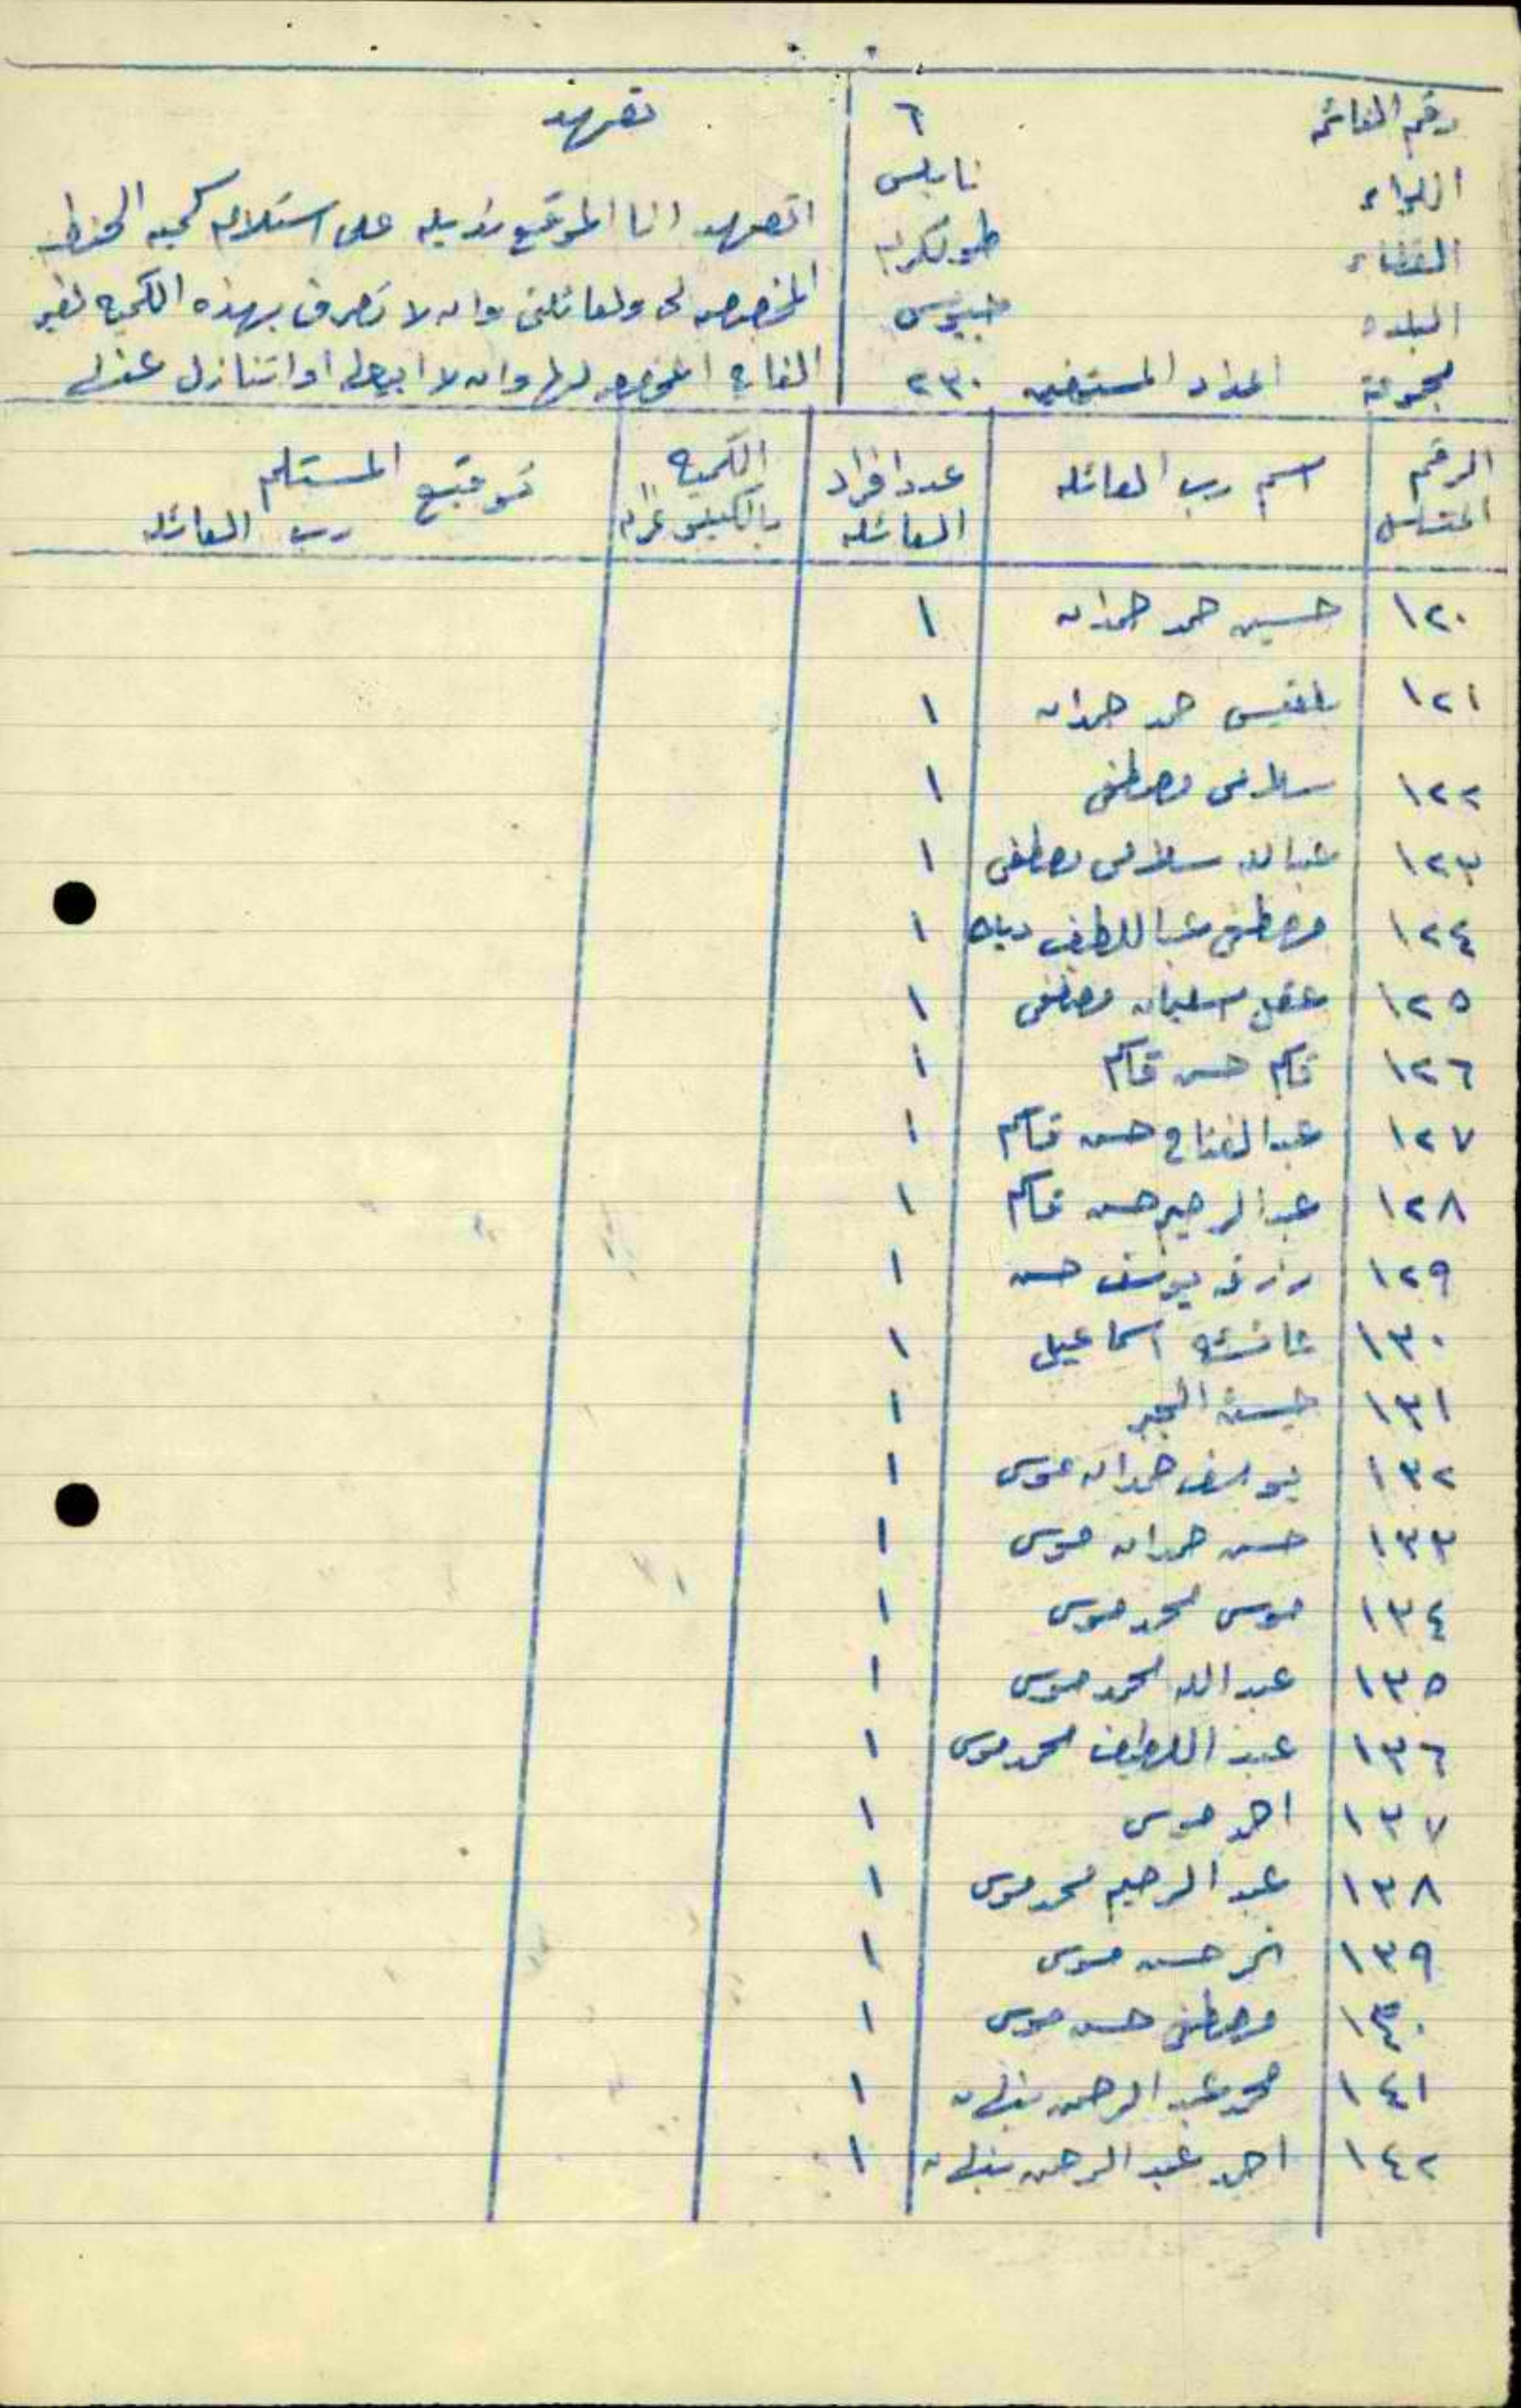 رقم القائمه ٦
اللواء نابلس
القضاء طولكرم
البلده جيوس
مجموعة اعداد المستحقين ٢٣٠
تعهد
اتعهد انا الموقع بذيله على استلام كميه الحنطه
المخصصه لي ولعائلتي وان لا تصرف بهذه الكميه لغير
الغايه المخصصه لها وان لا ابيعها او اتنازل عنها
الرقم المتسلسل | اسم رب العائله | عدد افراد العائله | الكميه بالكيلو غرام | توقيع المستلم رب العائله
١٢٠ حسين حمد حمدان ١
١٢١ بلقيس حمد حمدان ١
١٢٢ سلامه مصطفى ١
١٢٣ عبدالله سلامه مصطفى ١
١٢٤ مصطفى عبداللطيف ١
١٢٥ عقل سليمان مصطفى ١
١٢٦ قاسم حسن قاسم ١
١٢٧ عبدالفتاح حسن قاسم ١
١٢٨ عبدالرحيم حسن قاسم ١
١٢٩ رزق يوسف حسن ١
١٣٠ عائشه اسماعيل ١
١٣١ ١
١٣٢ يوسف حمدان موسى ١
١٣٣ حسن حمدان موسى ١
١٣٤ موسى محمد موسى ١
١٣٥ عبدالله محمد موسى ١
١٣٦ عبد اللطيف محمد موسى ١
١٣٧ احمد موسى ١
١٣٨ عبد الرحيم محمد موسى ١
١٣٩ حسن موسى ١
١٤٠ مصطفى حسن موسى ١
١٤١ محمد عبد الرحمن نبهان ١
١٤٢ احمد عبد الرحمن نبهان ١